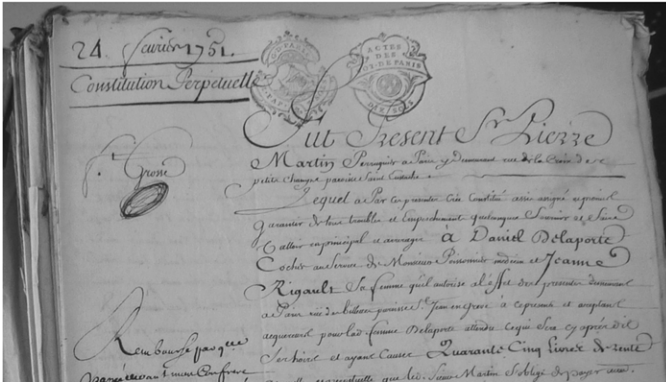 24 fevrier 1751.
Constitution Perpetuelle
ACTES
DES
NOT. DE PARIS
DIX SOLS
f.t Grosse
Fut Present Sr. Pierre
Martin Perruquier a Paris y demeurant rue de la Croix des
petits champs paroisse Saint Eustache
Lequel a Par ces presentes Créé Constitué assis assigné et promis
garantir de tous troubles et empeschemens quelconques fournir et faire
Valloir en principal et arrerages à Daniel Delaporte
Cocher au Service de Monsieur Poissonnier medecin et Jeanne
Rigault Sa femme qu'il autorise a l'effet des presentes demeurant
a Paris rue paroisse St. Jean en greve a ce presents et acceptans
acquereurs pour lad. femme Delaporte attendu ce qui Sera cy après dit
Ses hoirs et ayans Cause Quarante Cinq livres de rente
Sieur Martin S'oblige de payer
Rembourse par que